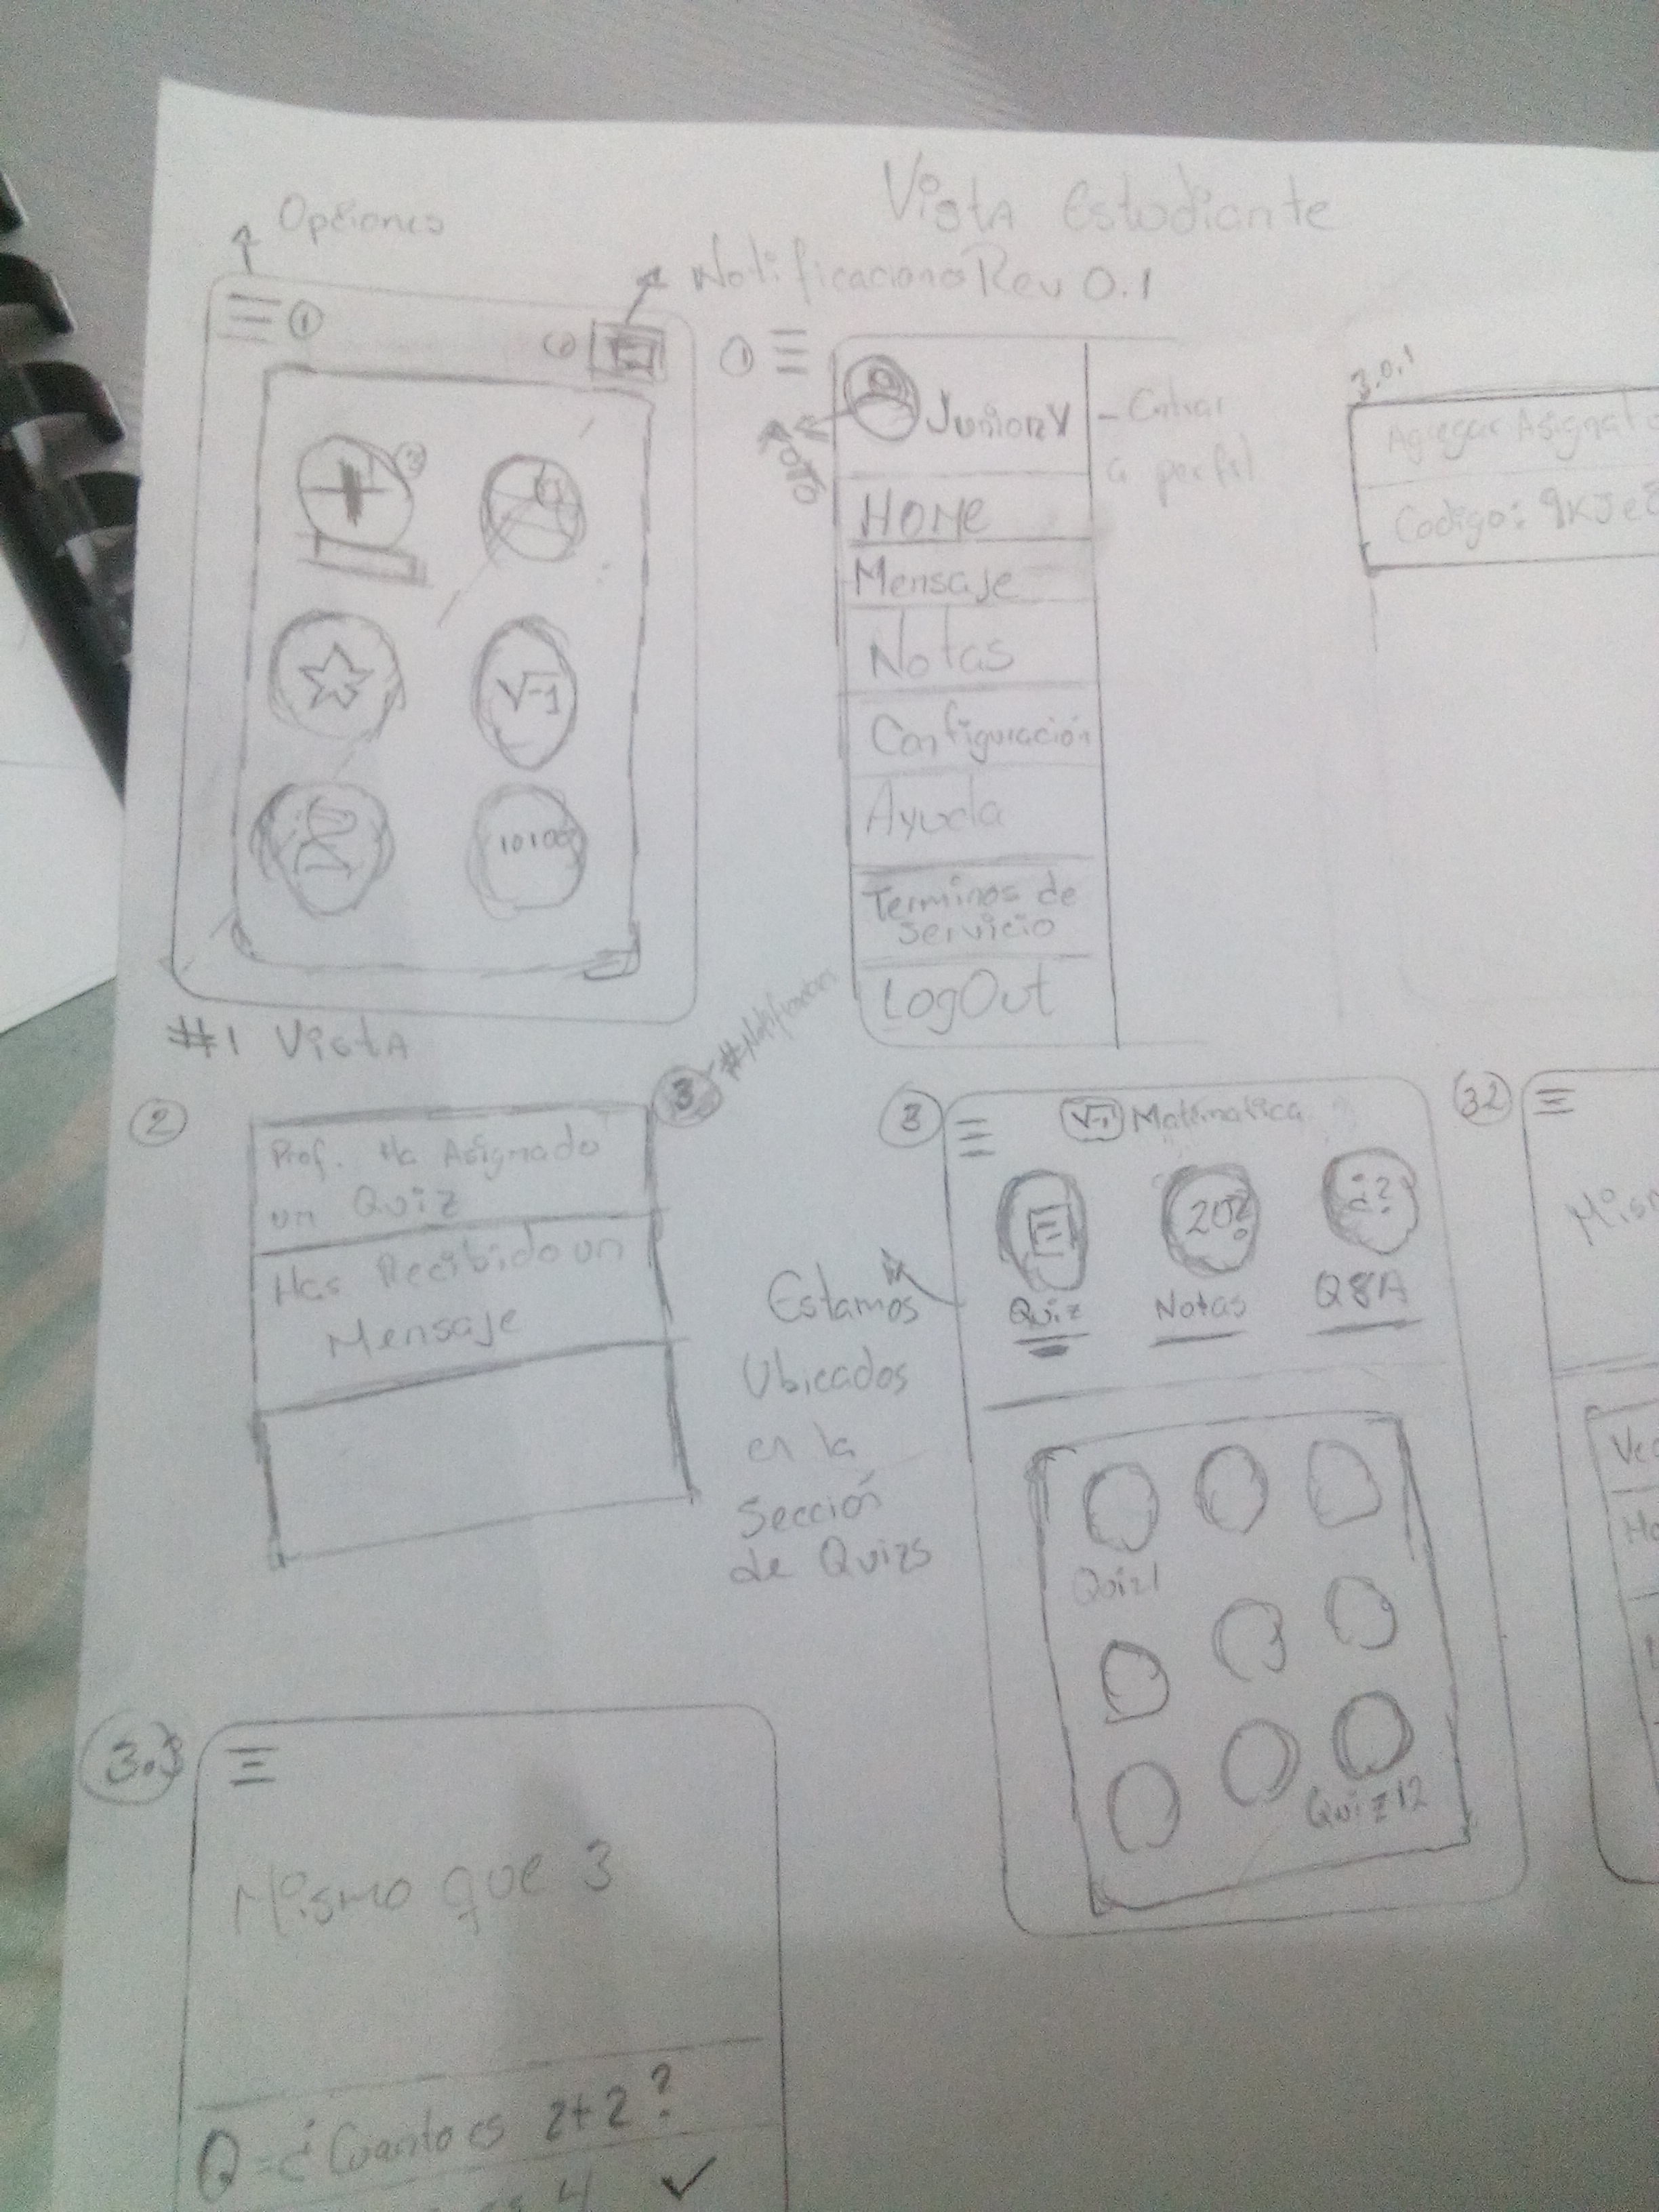 Vista Estudiante
Rev 0.1
Opciones
Notificaciones
1
√-1
#1 Vista
1
JuniorV
Foto
- Entrar
a perfil
Home
Mensaje
Notas
Configuración
Ayuda
Terminos de
servicio
LogOut
3.0.1
Agregar
Codigo:
2
3
#Notificaciones
Prof. Ha Asignado
un Quiz
Has Recibido un
Mensaje
3
√-1 Matematica
¿?
Quiz
Notas
Q&A
Estamos
Ubicados
en la
Sección
de Quizs
Quiz1
Quiz12
32
3.3
Mismo que 3
Q=¿Cuanto es 2+2?
4 ✓